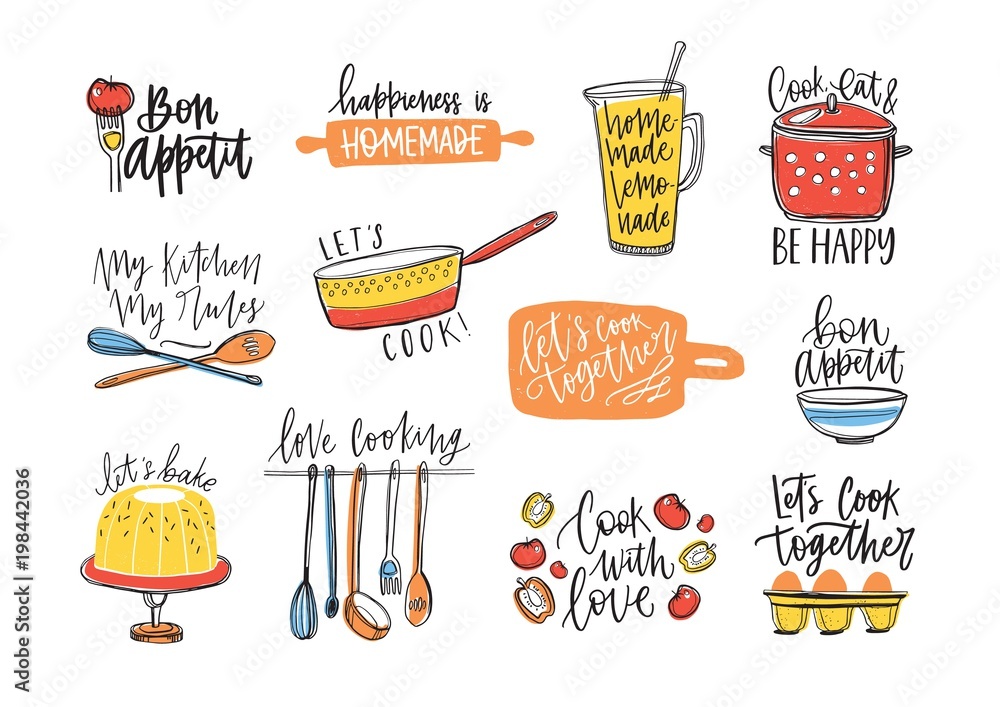 Bon
appetit
happieness is
HOMEMADE
home-
made
lemo-
nade
Cook, Eat &
BE HAPPY
My Kitchen
My Rules
LET'S
COOK!
let's cook
together
bon
appetit
let's bake
love cooking
Cook
with
love
Let's Cook
together
Adobe Stock | #198442036